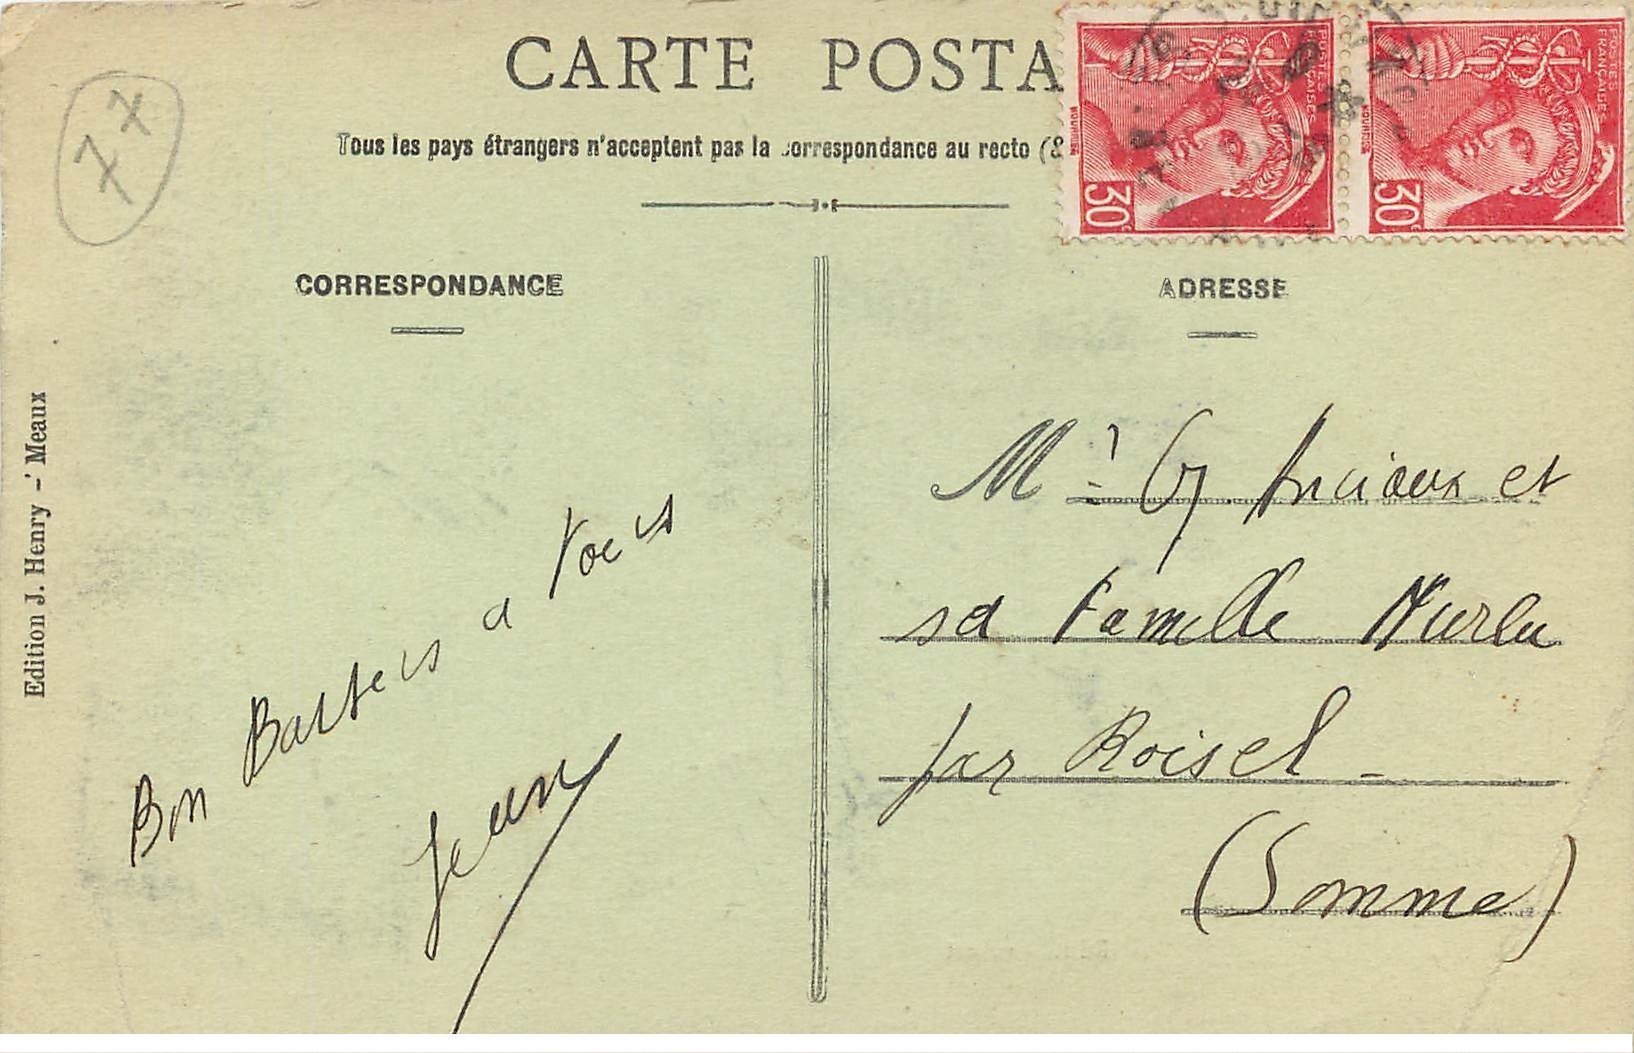 CARTE POSTA
Tous les pays étrangers n'acceptent pas la correspondance au recto (&
77
CORRESPONDANCE
ADRESSE
POSTES FRANÇAISES
30c
POSTES FRANÇAISES
30c
Edition J. Henry - Meaux
Bon Baisers a tous
Jean
Mr G. Anciaux et
sa Famille Nurlu
par Roisel -
(Somme)